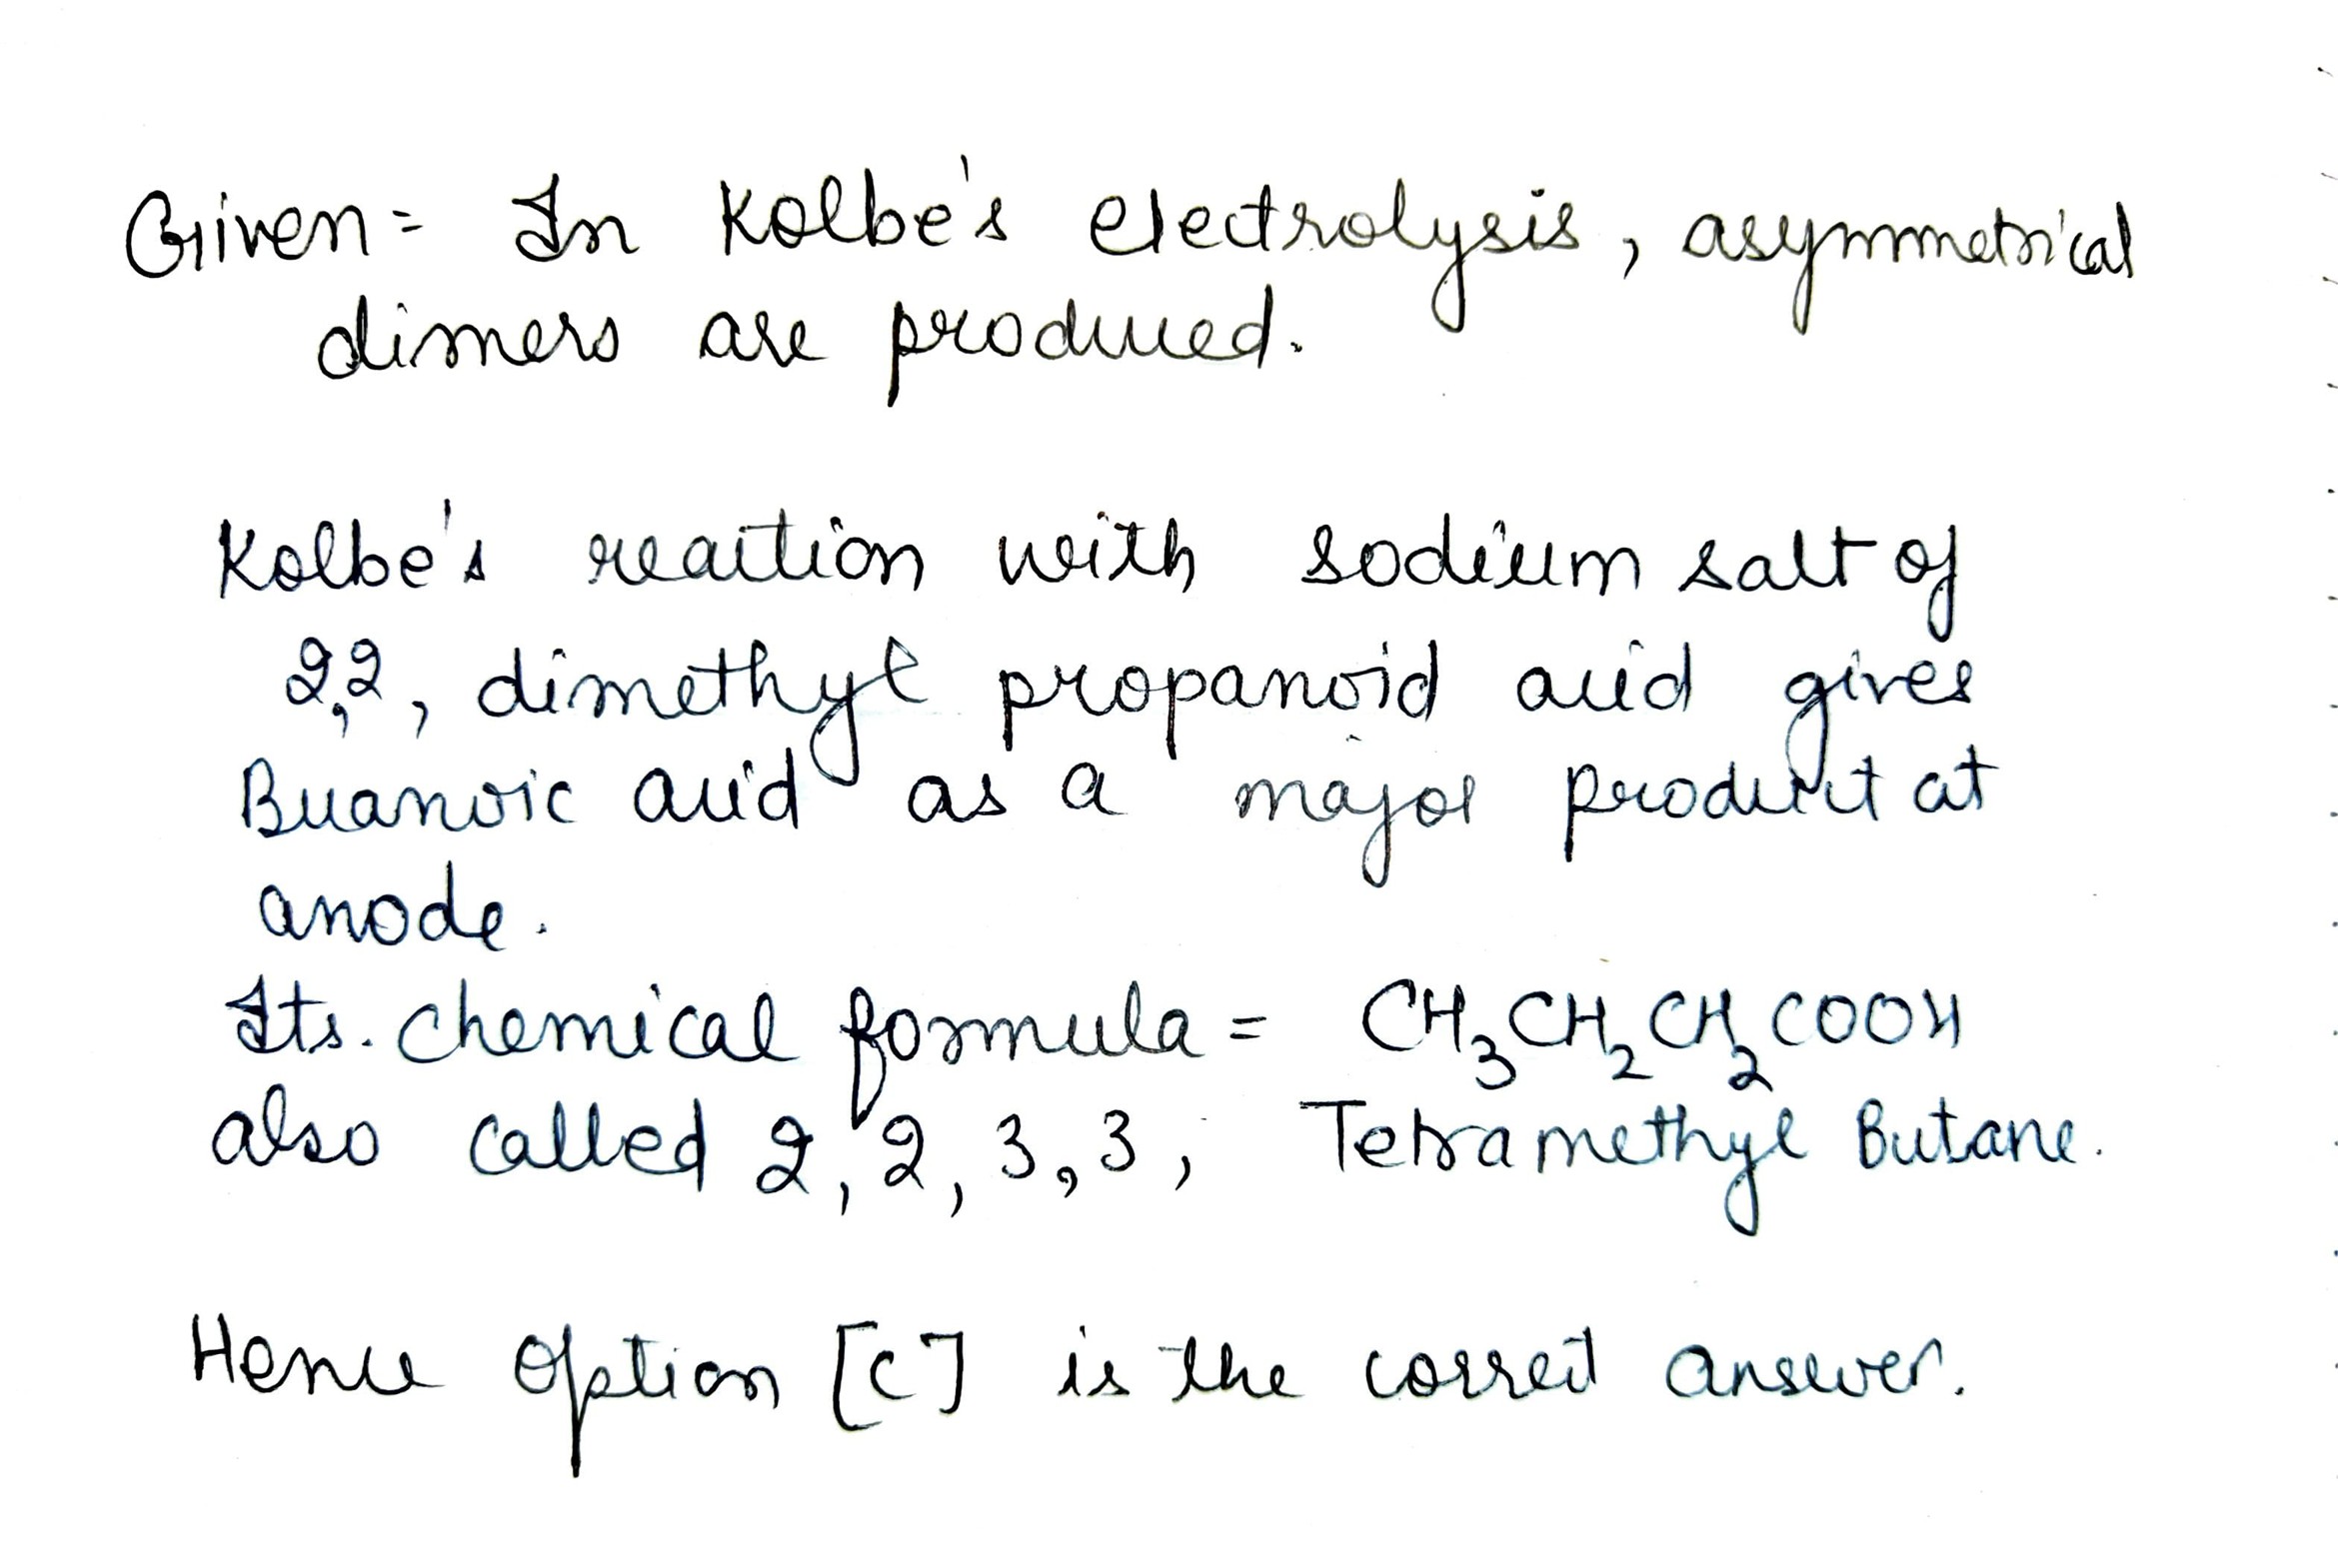 Given = In Kolbe's electrolysis, asymmetrical
dimers are produced.
Kolbe's reaction with sodium salt of
2,2, dimethyl propanoid acid gives
Buanoic acid as a major product at
anode.
Its. chemical formula = CH₃CH₂CH₂COOH
also called 2, 2, 3, 3, Tetramethyl Butane.
Hence Option [C] is the correct answer.